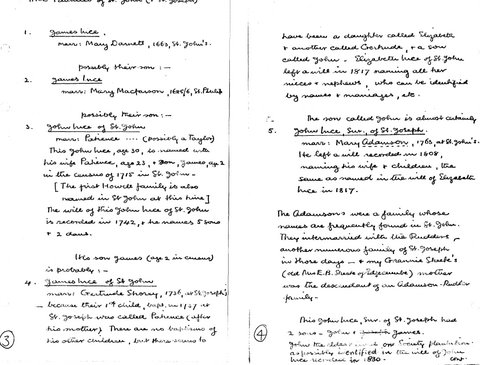 Families of St. John (& St. Joseph)
1. James Luce
marr: Mary Darnett, 1663, St. John's.
possibly their son :-
2. James Luce
marr: Mary Macfarson, 1685/6, St. Philip
possibly their son :-
3. John Luce of St. John
marr: Patience .... (possibly a Taylor)
This John Luce, age 30, is named with
his wife Patience, age 23, & son, James, age 2
in the census of 1715 in St. John -
[The first Howell family is also
named in St. John at this time]
The will of this John Luce of St. John
is recorded in 1742, & he names 5 sons
& 2 daus.
His son James (age 2 in census)
is probably :-
4. James Luce of St. John
marr: Gertrude Shorey, 1736, at St. Joseph's
because their 1st child, bapt. in 1737 at
St. Joseph was called Patience (after
his mother) There are no baptisms of
his other children, but there seems to
3
have been a daughter called Elizabeth
& another called Gertrude, & a son
called John. Elizabeth Luce of St. John
left a will in 1817 naming all her
nieces & nephews, who can be identified
by names & marriages, etc.
The son called John is almost certainly
5. John Luce, Snr. of St. Joseph.
marr: Mary Adamson, 1763, at St. John's.
He left a will recorded in 1808,
naming his wife & children, the
same as named in the will of Elizabeth
Luce in 1817.
The Adamsons were a family whose
names are frequently found in St. John.
They intermarried with the Rudders,
another numerous family of St. Joseph
in those days - & my Grannie Skeete's
(old Mrs E.B. Skeete of Edgecumbe) mother
was the descendant of an Adamson-Rudder
family.
This John Luce, Snr. of St. Joseph had
2 sons - John & James.
John the elder on Society plantation
as possibly identified in the will of John
Luce recorded in 1830 cont.
4